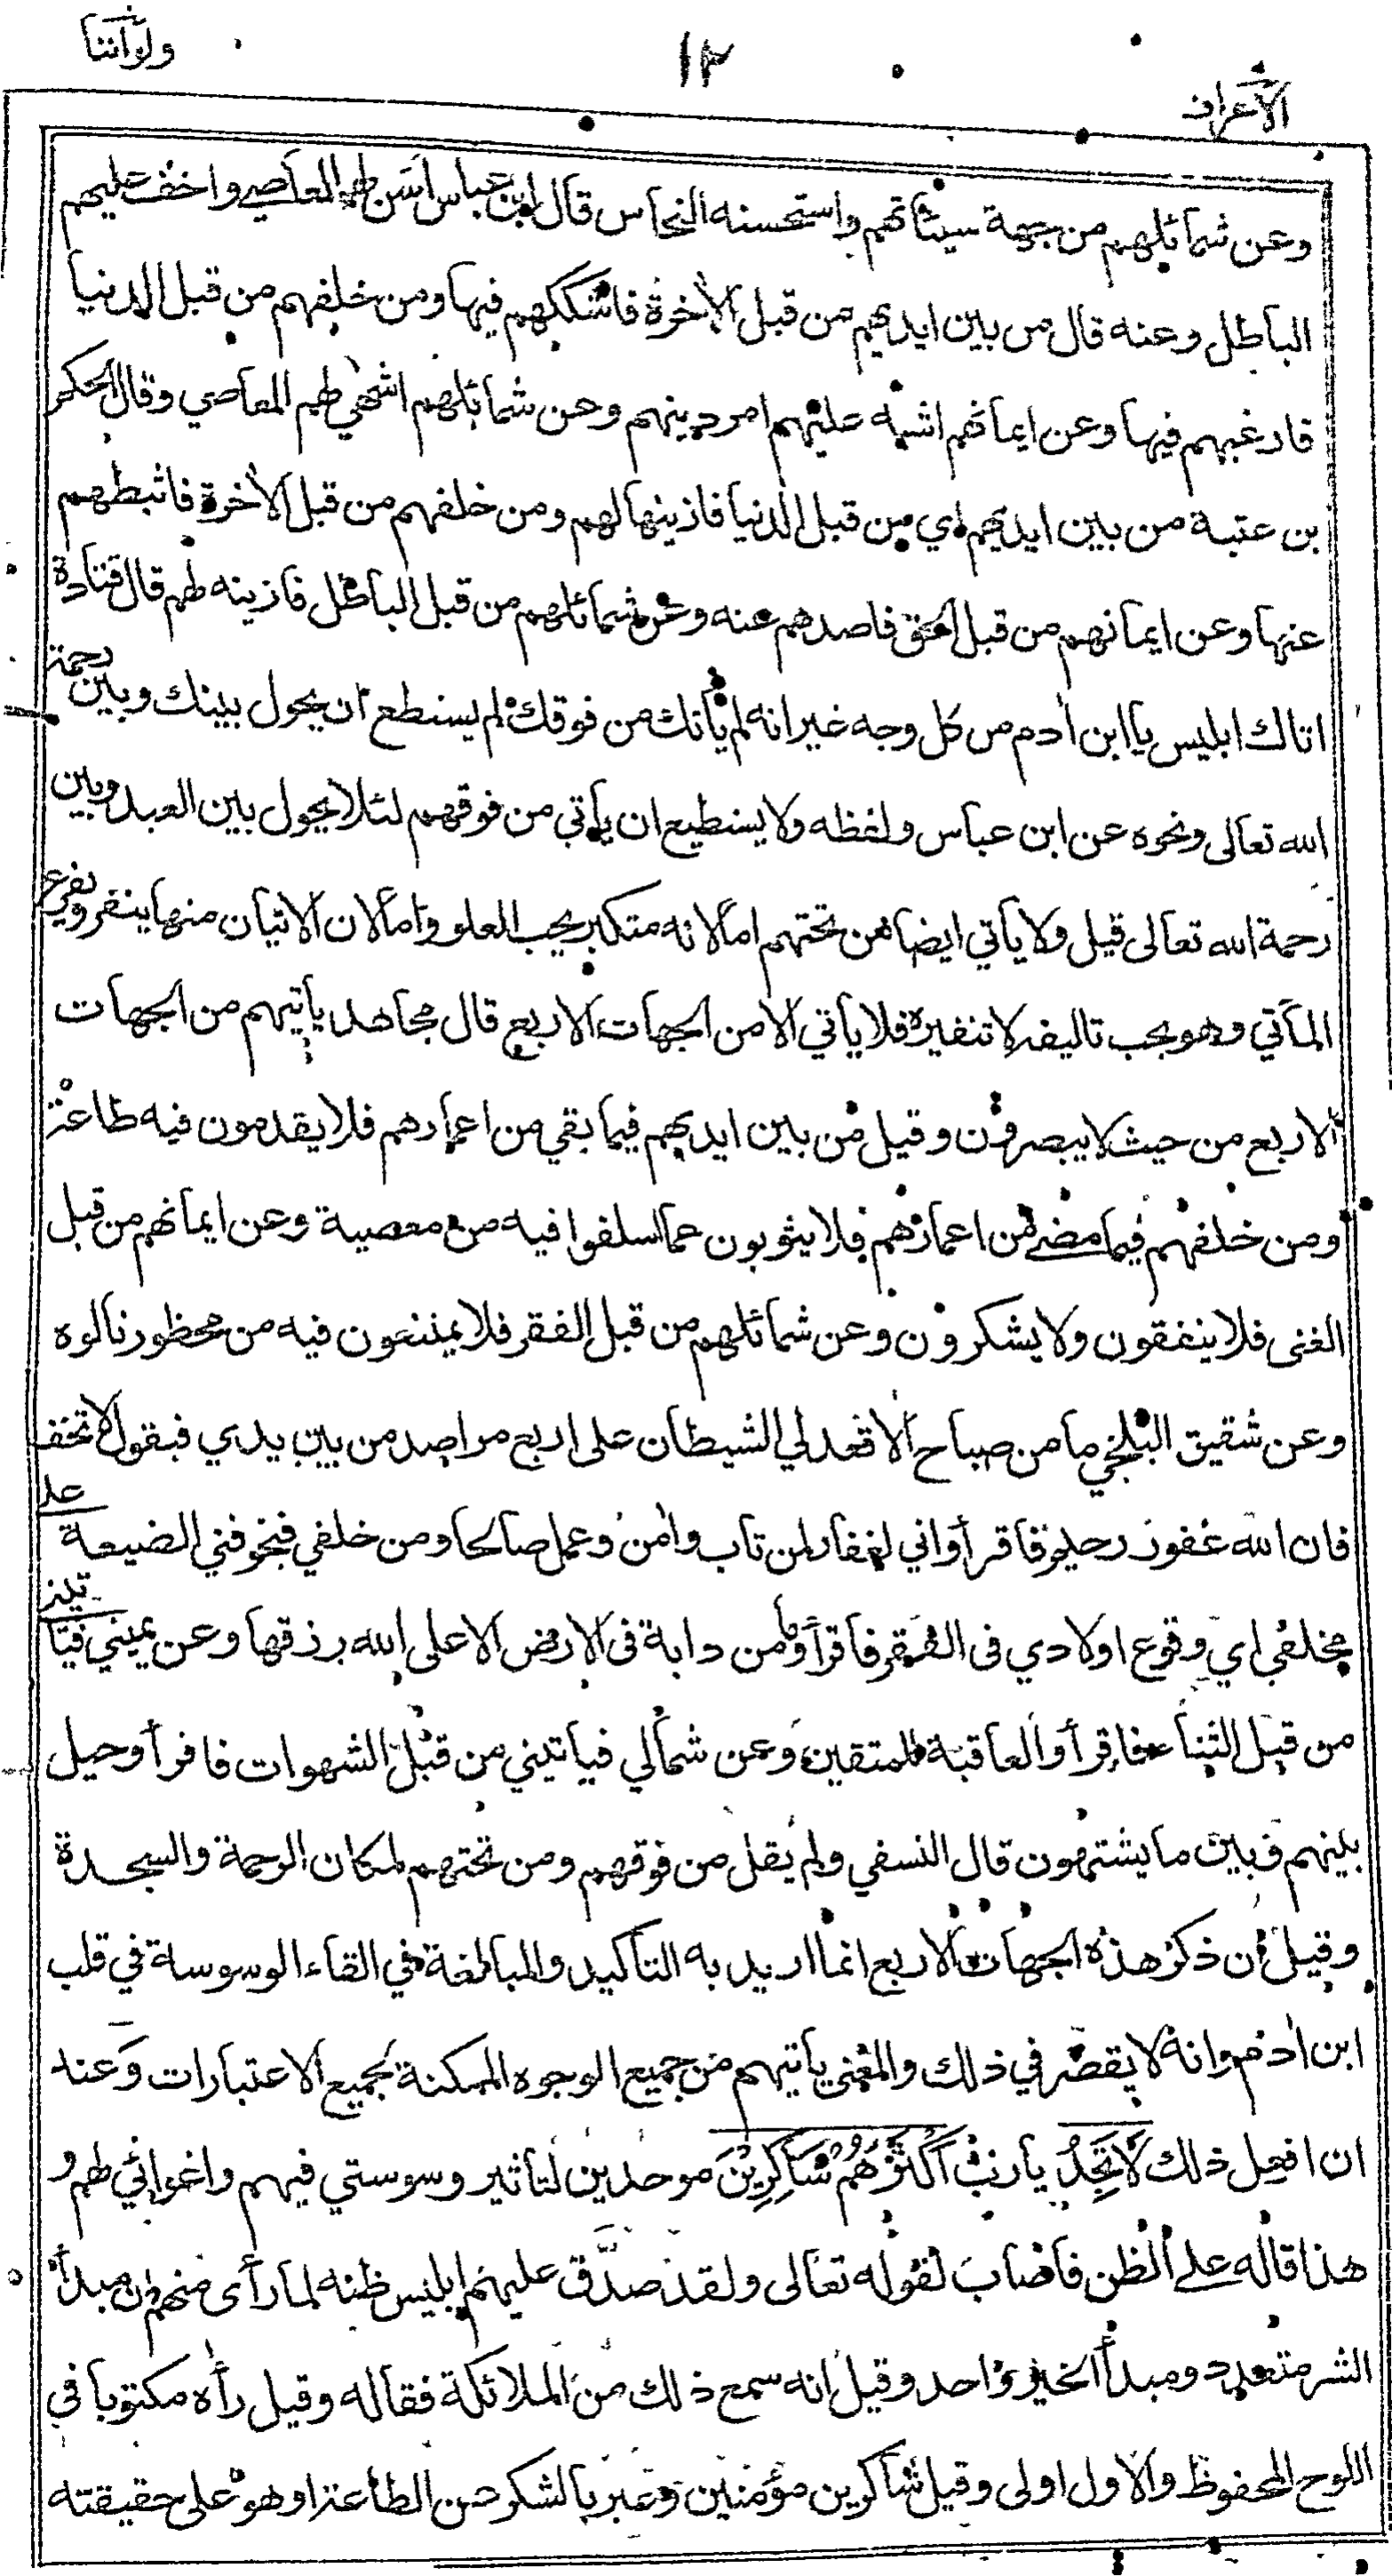 الأعراف ١٢ ولوأننا
وعن شمائلهم من جهة سيئاتهم واستحسنه النحاس قال ابن عباس اسن لهم المعاصي واخف عليهم
الباطل وعنه قال من بين ايديهم من قبل الأخرة فاشككهم فيها ومن خلفهم من قبل الدنيا
فارغبهم فيها وعن ايمانهم اشبه عليهم امر دينهم وعن شمائلهم اشهي لهم المعاصي وقال الحكم
بن عتبة من بين ايديهم اي من قبل الدنيا فازينها لهم ومن خلفهم من قبل الأخرة فاثبطهم
عنها وعن ايمانهم من قبل الحق فاصدهم عنه وعن شمائلهم من قبل الباطل فازينه لهم قال قتادة
اتاك ابليس يا ابن أدم من كل وجه غير انه لم يأتك من فوقك لم يستطع ان يحول بينك وبين رحمة
الله تعالى ونحوه عن ابن عباس ولفظه ولا يستطيع ان يأتي من فوقهم لئلا يحول بين العبد وبين
رحمة الله تعالى قيل ولا يأتي ايضا من تحتهم اما لانه متكبر يحب العلو واما لان الاتيان منها ينفر ويفزع
المأتي وهو يحب تاليفه لا تنفيره فلا يأتي الا من الجهات الاربع قال مجاهد يأتيهم من الجهات
الاربع من حيث لا يبصرون وقيل من بين ايديهم فيما بقي من اعمارهم فلا يقدمون فيه طاعة
ومن خلفهم فيما مضى من اعمارهم فلا يتوبون عما اسلفوا فيه من معصية وعن ايمانهم من قبل
الغنى فلا ينفقون ولا يشكرون وعن شمائلهم من قبل الفقر فلا يمتنعون فيه من محظور نالوه
وعن شقيق البلخي ما من صباح الا قعد لي الشيطان على اربع مراصد من بين يدي فيقول لا تخف
فان الله غفور رحيم فاقرأ واني لغفار لمن تاب وأمن وعمل صالحا ومن خلفي فيخوفني الضيعة على
مخلفي اي وقوع اولادي في الفقر فاقرأ وما من دابة في الارض الا على الله رزقها وعن يميني فيأتيني
من قبل الثناء فاقرأ والعاقبة للمتقين وعن شمالي فيأتيني من قبل الشهوات فاقرأ وحيل
بينهم وبين ما يشتهون قال النسفي ولم يقل من فوقهم ومن تحتهم لمكان الرحمة والسجدة
وقيل ان ذكر هذه الجهات الاربع انما اريد به التأكيد والمبالغة في القاء الوسوسة في قلب
ابن أدم وانه لا يقصر في ذلك والمعنى يأتيهم من جميع الوجوه الممكنة بجميع الاعتبارات وعند
ان افعل ذلك لَا تَجِدُ يا رب أَكْثَرَهُمْ شَاكِرِيْنَ موحدين لتأثير وسوستي فيهم واغوائي لهم و
هذا قاله على الظن فأصاب لقوله تعالى ولقد صدّق عليهم ابليس ظنه لما رأى منهم ان مبدأ
الشر متعدد ومبدأ الخير واحد وقيل انه سمع ذلك من الملائكة فقاله وقيل رأه مكتوبا في
اللوح المحفوظ والاول اولى وقيل شاكرين مؤمنين وعبر بالشكر عن الطاعة او هو على حقيقته